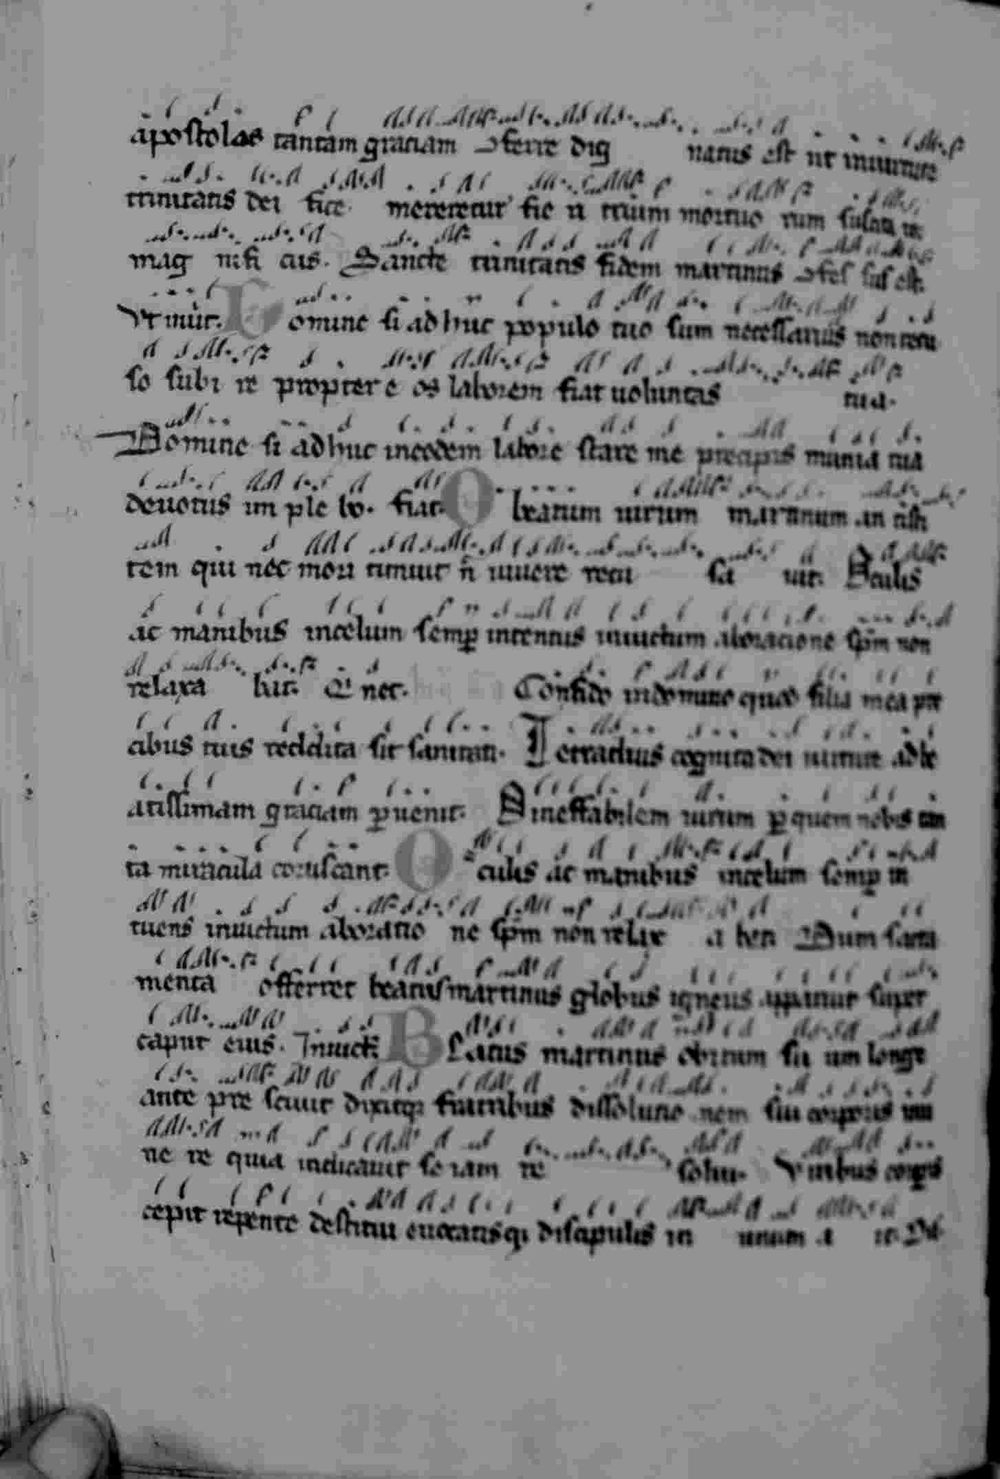 apostolos tantam gratiam ɔferre dig natus est ut in uirtute
trinitatis dei fice meretur fie
mag nifi cus. Sancte trinitatis fidem martinus ɔfes sus est.
Vt in uir. Domine si adhuc populo tuo sum necessarius non recu
so subi re propter e os laborem fiat uoluntas tua.
Domine si adhuc in eodem labore stare me precipis munia tua
deuotus im ple bo. fiat. O beatum uirum martinum an tisti
tem qui nec mori timuit n̄ uiuere recu sa uit. Oculis
ac manibus in celum semp intentus inuictum ab oratione sp̄m non
relaxa bat. Q̇ nec. Confido in domino quod filia mea pre
cibus tuis reddita sit sanitati. Tetradius cognita dei uirtute ad be
atissimam gratiam puenit. O ineffabilem uirum p quem nobis tan
ta miracula coruscant. Oculis ac manibus in celum semp in
tuens inuictum ab oratio ne sp̄m non relax a bat. Dum sacra
menta offerret beatus martinus globus igneus apparuit super
caput eius. Inuict. Beatus martinus obitum su um longe
ante pre sciuit dixitq; fratribus dissolutio nem sui corporis immi
ne re quia indicauit se iam re solui. Viribus corporis
cepit repente destitui conuocatisq; discipulis in unum a it.